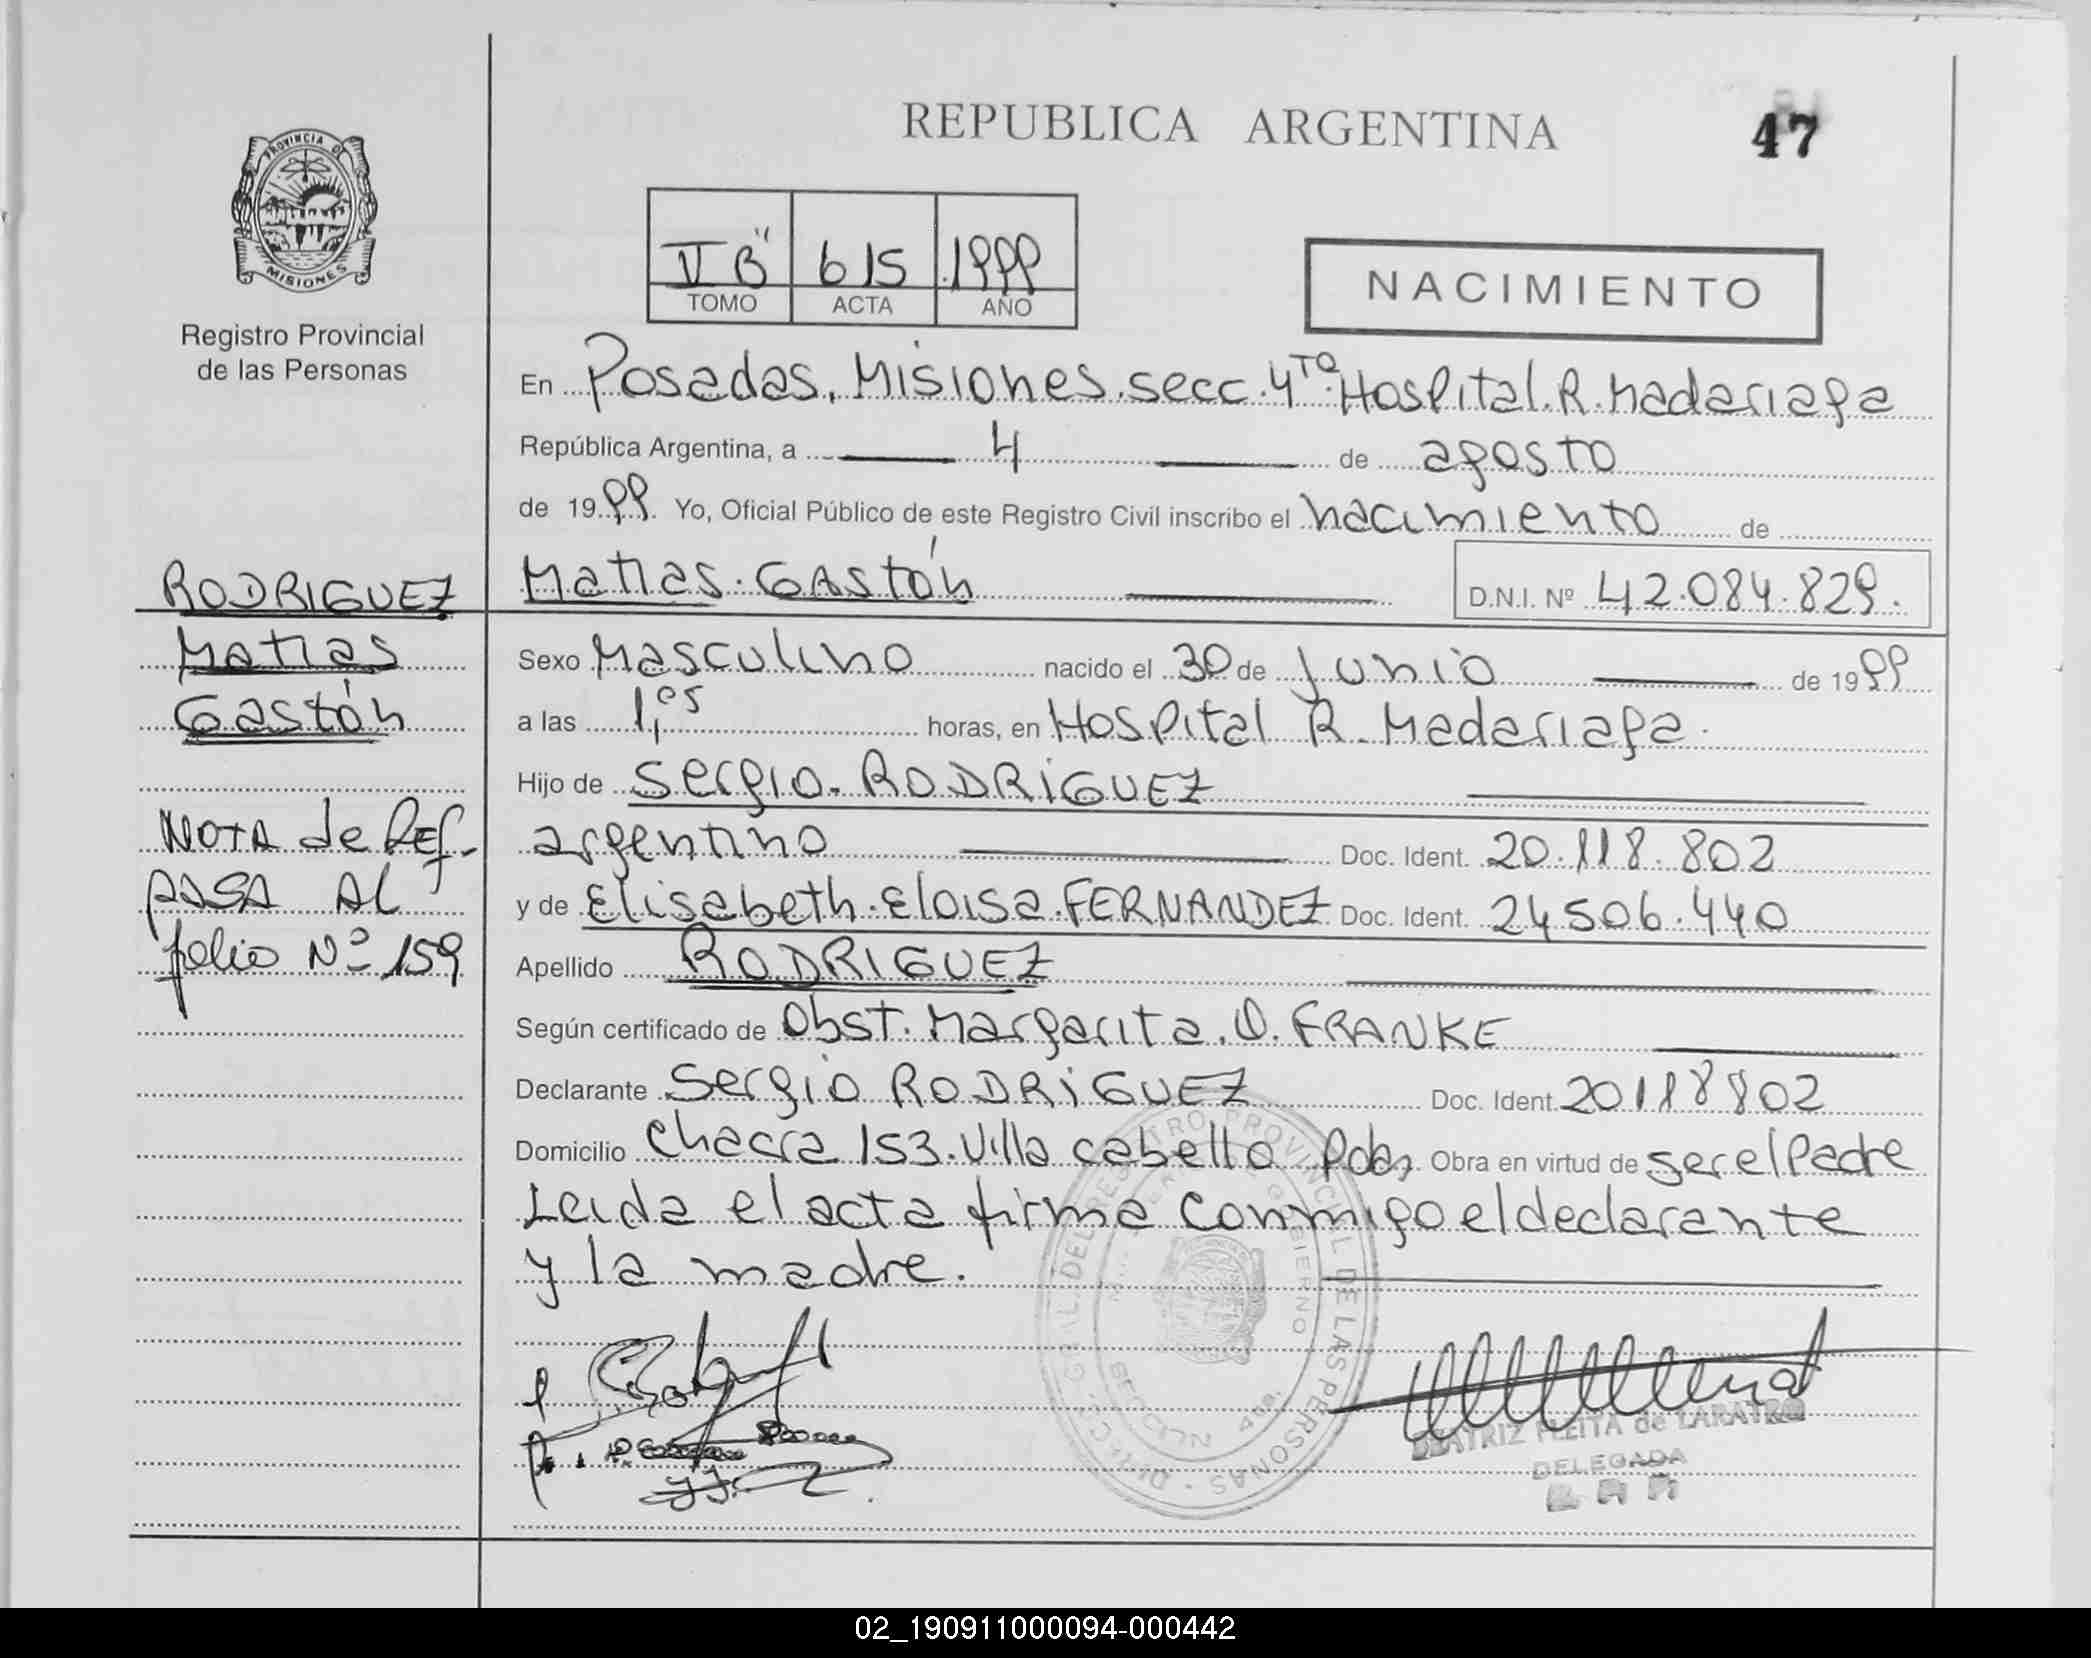 REPUBLICA ARGENTINA
47
PROVINCIA DE
MISIONES
Registro Provincial
de las Personas
II B" 615 1999
TOMO ACTA AÑO
NACIMIENTO
En Posadas, Misiones. secc. 4TA. Hospital R. Madariaga
República Argentina, a 4 de agosto
de 1999. Yo, Oficial Público de este Registro Civil inscribo el nacimiento de
Matias Gastón D.N.I. Nº 42.084.829.
RODRIGUEZ
Matias
Gastón
Sexo Masculino nacido el 30 de junio de 1999
a las 1,05 horas, en Hospital R. Madariaga.
Hijo de Sergio RODRIGUEZ
argentino Doc. Ident. 20.118.802
y de Elisabeth Eloisa FERNANDEZ Doc. Ident. 24506.440
Apellido RODRIGUEZ
NOTA de Ref.
PASA AL
folio Nº 159
Según certificado de Obst. Margarita O. FRANKE
Declarante Sergio RODRIGUEZ Doc. Ident. 20118802
Domicilio Chacra 153. Villa Cabello Pdas, Obra en virtud de ser el Padre
Leida el acta firma conmigo el declarante
y la madre.
REGISTRO PROVINCIAL DE LAS PERSONAS
GOBIERNO
BEATRIZ FLEITA de LABATRO
DELEGADA
02_190911000094-000442